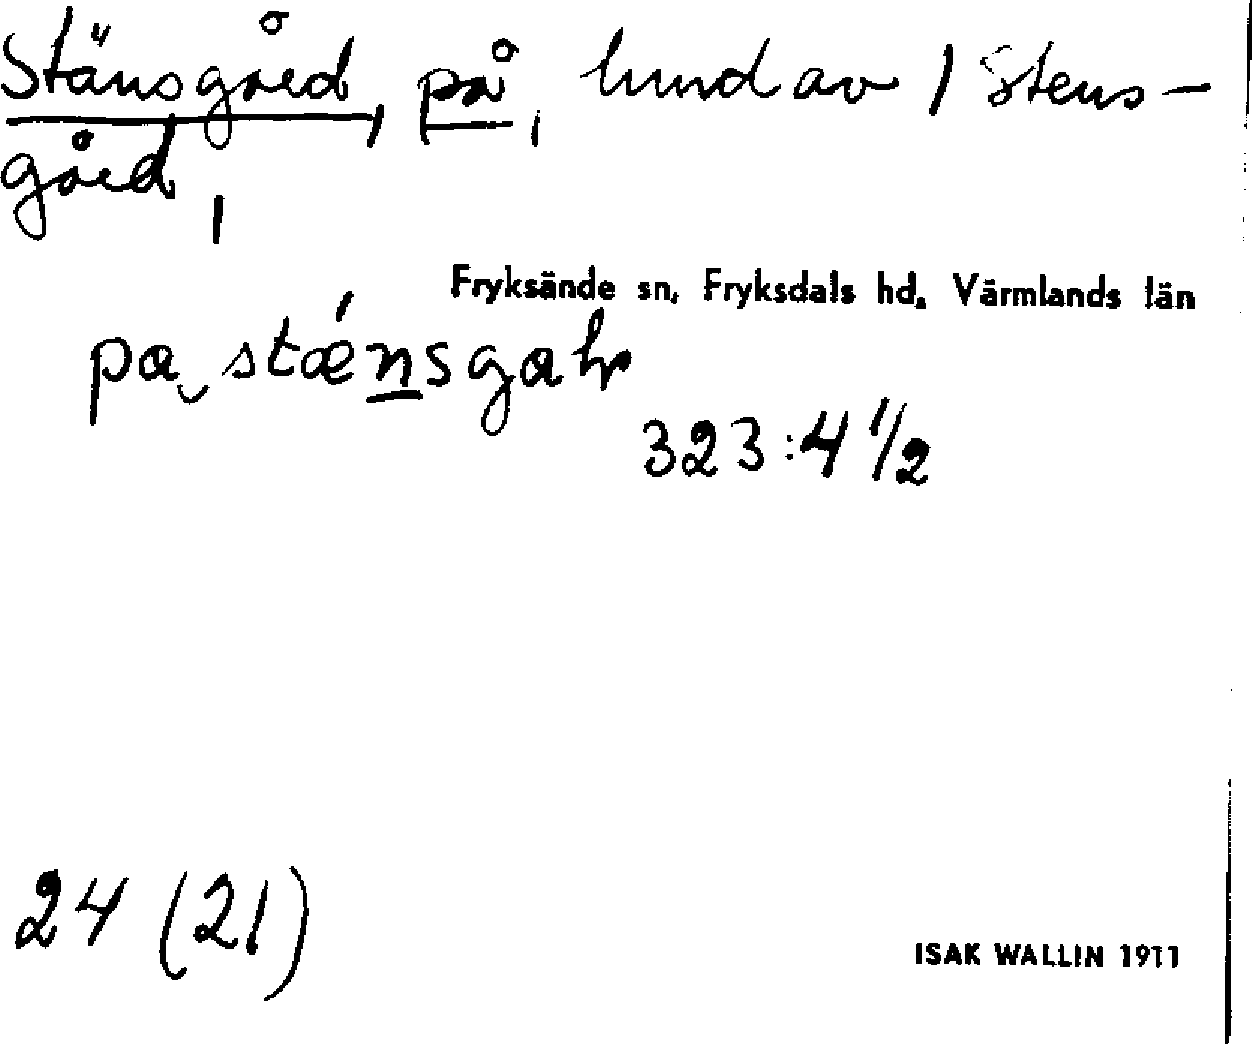 Stänsgård, på, lund av / Stens-
gård,
Fryksände sn, Fryksdals hd. Värmlands län
pa stǽnsgaḷṛ
323:4 1/2
24 (21)
ISAK WALLIN 1911